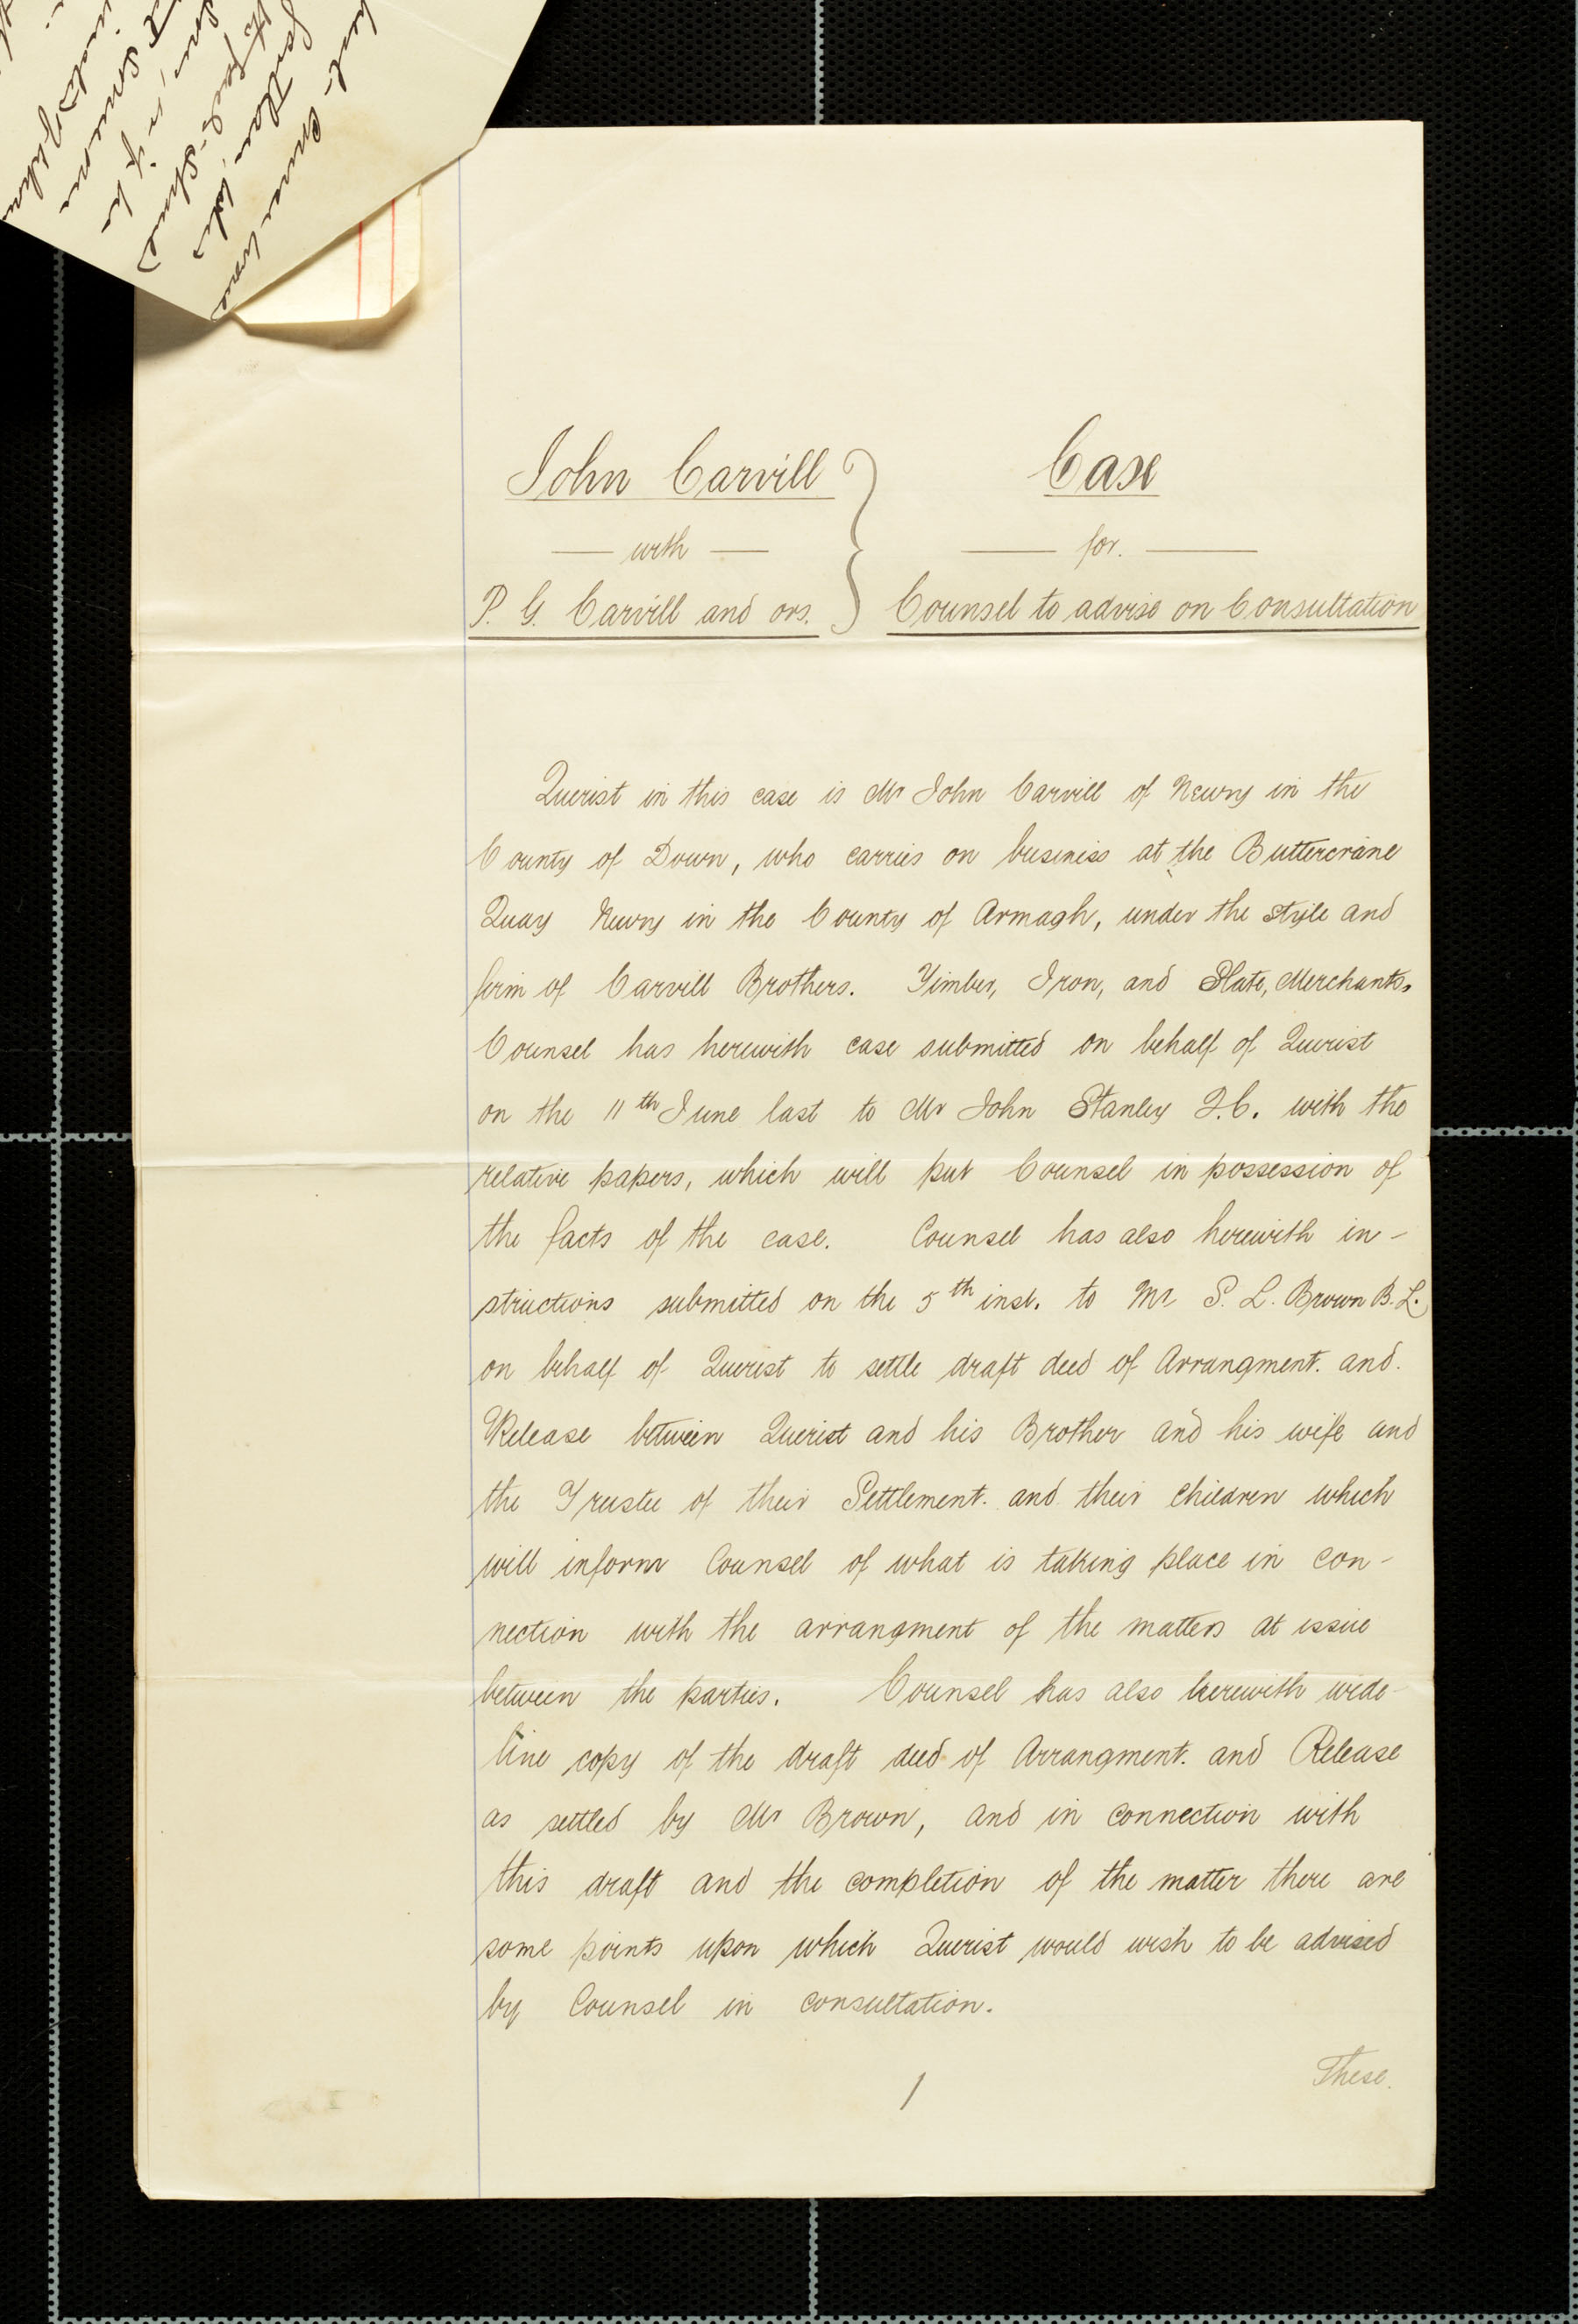 John Carvill
— with —
P. G. Carvill and ors.
Case
— for. —
Counsel to advise on Consultation
Querist in this case is Mr John Carvill of Newry in the
County of Down, who carries on business at the Buttercrane
Quay Newry in the County of Armagh, under the style and
firm of Carvill Brothers. Timber, Iron, and Slate, Merchants.
Counsel has herewith case submitted on behalf of Querist
on the 11th June last to Mr John Stanley Q.C. with the
relative papers, which will put Counsel in possession of
the facts of the case. Counsel has also herewith in-
structions submitted on the 5th inst. to Mr S. L. Brown B.L.
on behalf of Querist to settle draft deed of Arrangment. and.
Release between Querist and his Brother and his wife and
the Trustee of their Settlement. and their children which
will inform Counsel of what is taking place in con-
nection with the arrangment of the matters at issue
between the parties. Counsel has also herewith wide-
line copy of the draft deed of Arrangment. and Release
as settled by Mr Brown, and in connection with
this draft and the completion of the matter there are
some points upon which Querist would wish to be advised
by Counsel in consultation.
These.
1